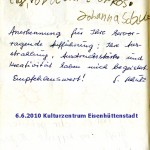 Johanna
Anerkennung für Ihre hervor-
ragende Aufführung! Ihre Aus-
strahlung, Ausdrucksstärke und
Kreativität haben mich begeistert.
Empfehlenswert!
6.6.2010 Kulturzentrum Eisenhüttenstadt